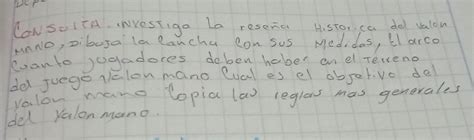 CONSULTA. investiga la reseña HisTorica del valon
mano, Dibuja la cancha con sus Medidas, El arco
cuanto jugadores deben haber en el Terreno
del juego valon mano Cual es el objetivo del
valon mano Copia las reglas mas generales
del valon mano.